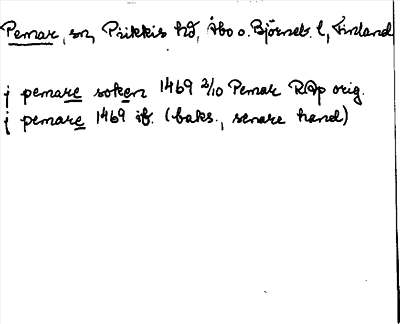 Pemar, sn, Piikkis hd, Åbo o. Björneb. l, Finland
j pemare soken 1469 2/10 Pemar RAp orig.
j pemare 1469 ib. (baks., senare hand)